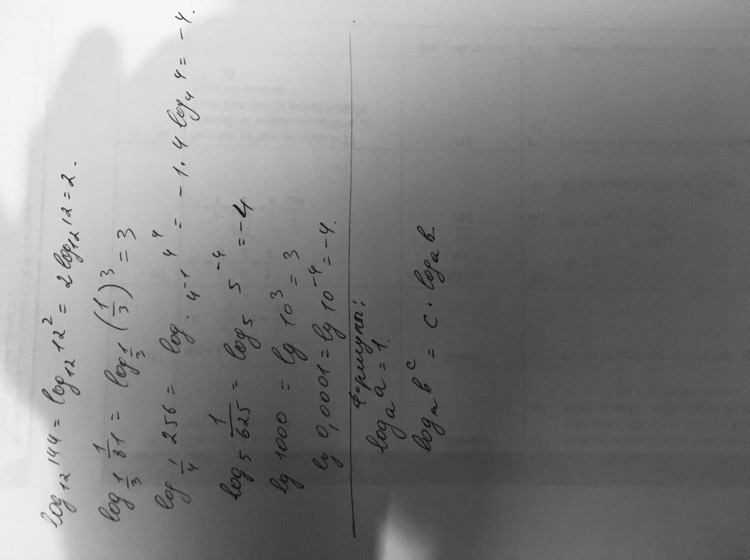 log₁₂ 144 = log₁₂ 12² = 2 log₁₂ 12 = 2.
log_{1/3} 1/81 = log_{1/3} (1/3)³ = 3
log_{1/4} 256 = log_{4⁻¹} 4⁴ = -1·4 log₄ 4 = -4.
log₅ 1/625 = log₅ 5⁻⁴ = -4
lg 1000 = lg 10³ = 3
lg 0,0001 = lg 10⁻⁴ = -4.
Формулы:
logₐ a = 1.
logₐ bᶜ = c · logₐ b